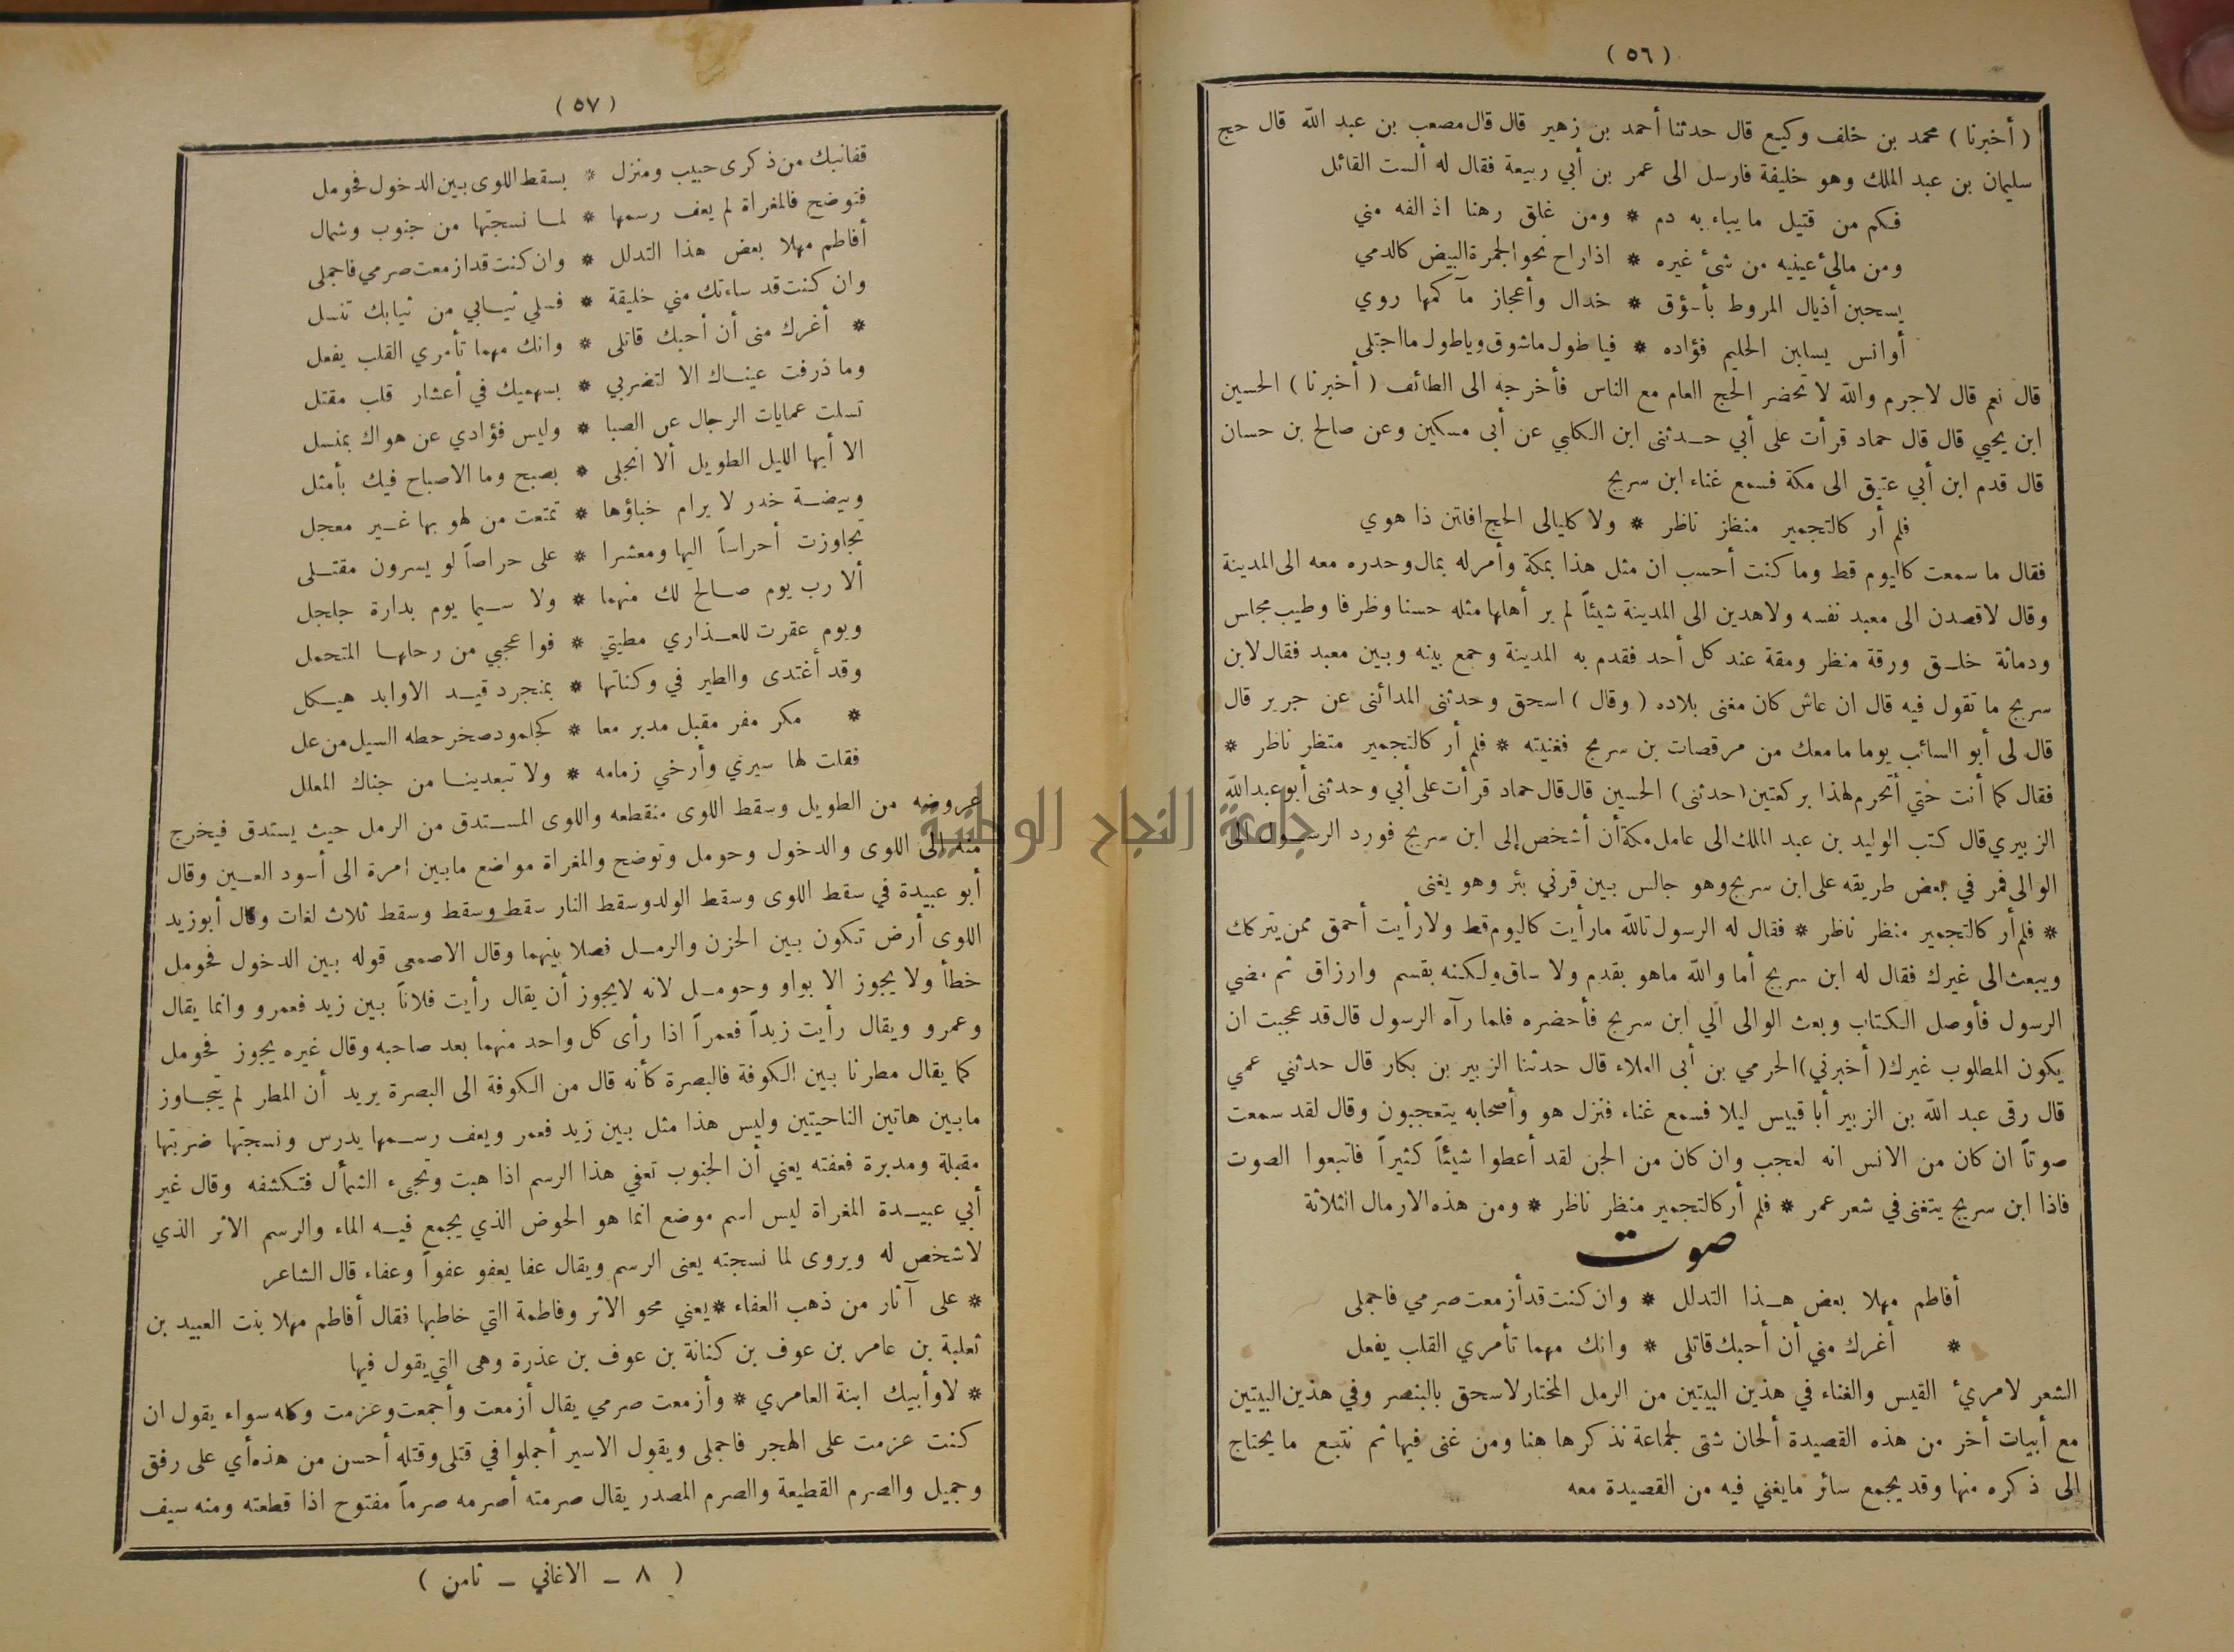 ( ٥٦ )
( أخبرنا ) محمد بن خلف وكيع قال حدثنا أحمد بن زهير قال قال مصعب بن عبد الله قال حج
سليمان بن عبد الملك وهو خليفة فارسل الى عمر بن أبي ربيعة فقال له ألست القائل
فكم من قتيل ما يباء به دم * ومن غلق رهنا اذ الفه مني
ومن مالئ عينيه من شئ غيره * اذا راح نحو الجمرة البيض كالدمي
يسحبن أذيال المروط بأسؤق * خدال وأعجاز مآكمها روي
أوانس يسلبن الحليم فؤاده * فيا طول ماشوق ويا طول ما اجتلى
قال نعم قال لاجرم والله لا تحضر الحج العام مع الناس فأخرجه الى الطائف ( أخبرنا ) الحسين
ابن يحيي قال قال حماد قرأت على أبي حدثنى ابن الكلبي عن أبي مسكين وعن صالح بن حسان
قال قدم ابن أبي عتيق الى مكة فسمع غناء ابن سريج
فلم أر كالتجمير منظر ناظر * ولا كليالى الحج افلتن ذا هوي
فقال ما سمعت كاليوم قط وما كنت أحسب ان مثل هذا بمكة وأمر له بمال وحدره معه الى المدينة
وقال لاقصدن الى معبد نفسه ولاهدين الى المدينة شيئاً لم ير أهلها مثله حسنا وظرفا وطيب مجلس
ودماثة خلق ورقة منظر ومقة عند كل أحد فقدم به المدينة وجمع بينه وبين معبد فقال لابن
سريج ما تقول فيه قال ان عاش كان مغنى بلاده ( وقال ) اسحق وحدثنى المدائنى عن جرير قال
قال لى أبو السائب يوما ما معك من مرقصات بن سريج فغنيته * فلم أر كالتجمير منظر ناظر *
فقال كما أنت حتي أتحرم لهذا بركعتين ( حدثنى ) الحسين قال قال حماد قرأت على أبي وحدثنى أبو عبد الله
الزبيري قال كتب الوليد بن عبد الملك الى عامل مكة أن أشخص إلى ابن سريج فورد الرسول الى
الوالى فمر في بعض طريقه على ابن سريج وهو جالس بين قرني بئر وهو يغنى
* فلم أر كالتجمير منظر ناظر * فقال له الرسول تالله مارأيت كاليوم قط ولارأيت أحمق ممن يتركك
ويبعث الى غيرك فقال له ابن سريج أما والله ماهو بقدم ولا ساق ولكنه بقسم وارزاق ثم مضي
الرسول فأوصل الكتاب وبعث الوالى الي ابن سريج فأحضره فلما رآه الرسول قال قد عجبت ان
يكون المطلوب غيرك ( أخبرني ) الحرمي بن أبى العلاء قال حدثنا الزبير بن بكار قال حدثني عمي
قال رقى عبد الله بن الزبير أبا قبيس ليلا فسمع غناء فنزل هو وأصحابه يتعجبون وقال لقد سمعت
صوتاً ان كان من الانس انه لعجب وان كان من الجن لقد أعطوا شيئاً كثيراً فاتبعوا الصوت
فاذا ابن سريج يتغنى في شعر عمر * فلم أر كالتجمير منظر ناظر * ومن هذه الارمال الثلاثة
صوت
أفاطم مهلا بعض هذا التدلل * وان كنت قد أزمعت صرمي فاجملى
* أغرك مني أن أحبك قاتلى * وانك مهما تأمري القلب يفعل
الشعر لامرئ القيس والغناء في هذين البيتين من الرمل المختار لاسحق بالبنصر وفي هذين البيتين
مع أبيات أخر من هذه القصيدة ألحان شتى لجماعة نذكرها هنا ومن غنى فيها ثم نتبع ما يحتاج
الى ذكره منها وقد يجمع سائر مايغني فيه من القصيدة معه
( ٥٧ )
قفانبك من ذكرى حبيب ومنزل * بسقط اللوى بين الدخول فحومل
فتوضح فالمغراة لم يعف رسمها * لما نسجتها من جنوب وشمال
أفاطم مهلا بعض هذا التدلل * وان كنت قد ازمعت صرمي فاجملى
وان كنت قد ساءتك مني خليقة * فسلي ثيابي من ثيابك تنسل
* أغرك منى أن أحبك قاتلى * وانك مهما تأمري القلب يفعل
وما ذرفت عيناك الا لتضربي * بسهميك في أعشار قلب مقتل
تسلت عمايات الرجال عن الصبا * وليس فؤادي عن هواك بمنسل
الا أيها الليل الطويل ألا انجلى * بصبح وما الاصباح فيك بأمثل
وبيضة خدر لا يرام خباؤها * تمتعت من لهو بها غير معجل
تجاوزت أحراساً اليها ومعشرا * على حراصاً لو يسرون مقتلى
ألا رب يوم صالح لك منهما * ولا سيما يوم بدارة جلجل
ويوم عقرت للعذاري مطيتي * فوا عجبي من رحلها المتحمل
وقد أغتدى والطير في وكناتها * بمنجرد قيد الاوابد هيكل
* مكر مفر مقبل مدبر معا * كجلمود صخر حطه السيل من عل
فقلت لها سيري وأرخي زمامه * ولا تبعدينا من جناك المعلل
عروضه من الطويل وسقط اللوى منقطعه واللوى المستدق من الرمل حيث يستدق فيخرج
منه الى اللوى والدخول وحومل وتوضح والمغراة مواضع مابين امرة الى أسود العين وقال
أبو عبيدة في سقط اللوى وسقط الولد وسقط النار سقط وسقط وسقط ثلاث لغات وقال أبو زيد
اللوى أرض تكون بين الحزن والرمل فصلا بينهما وقال الاصمعى قوله بين الدخول فحومل
خطأ ولا يجوز الا بواو وحومل لانه لايجوز أن يقال رأيت فلاناً بين زيد فعمرو وانما يقال
وعمرو ويقال رأيت زيداً فعمراً اذا رأى كل واحد منهما بعد صاحبه وقال غيره يجوز فحومل
كما يقال مطرنا بين الكوفة فالبصرة كأنه قال من الكوفة الى البصرة يريد أن المطر لم يتجاوز
مابين هاتين الناحيتين وليس هذا مثل بين زيد فعمر ويعف رسمها يدرس ونسجتها ضربتها
مقبلة ومدبرة فعفته يعني أن الجنوب تعفي هذا الرسم اذا هبت وتجيء الشمأل فتكشفه وقال غير
أبي عبيدة المغراة ليس اسم موضع انما هو الحوض الذي يجمع فيه الماء والرسم الاثر الذي
لاشخص له ويروى لما نسجته يعنى الرسم ويقال عفا يعفو عفواً وعفاء قال الشاعر
* على آثار من ذهب العفاء * يعني محو الاثر وفاطمة التي خاطبها فقال أفاطم مهلا بنت العبيد بن
ثعلبة بن عامر بن عوف بن كنانة بن عوف بن عذرة وهى التي يقول فيها
* لا وأبيك ابنة العامري * وأزمعت صرمي يقال أزمعت وأجمعت وعزمت وكله سواء يقول ان
كنت عزمت على الهجر فاجملى ويقول الاسير أجملوا في قتلى وقتله أحسن من هذه أي على رفق
وجميل والصرم القطيعة والصرم المصدر يقال صرمته أصرمه صرماً مفتوح اذا قطعته ومنه سيف
( ٨ – الاغاني – ثامن )
جامعة النجاح الوطنية